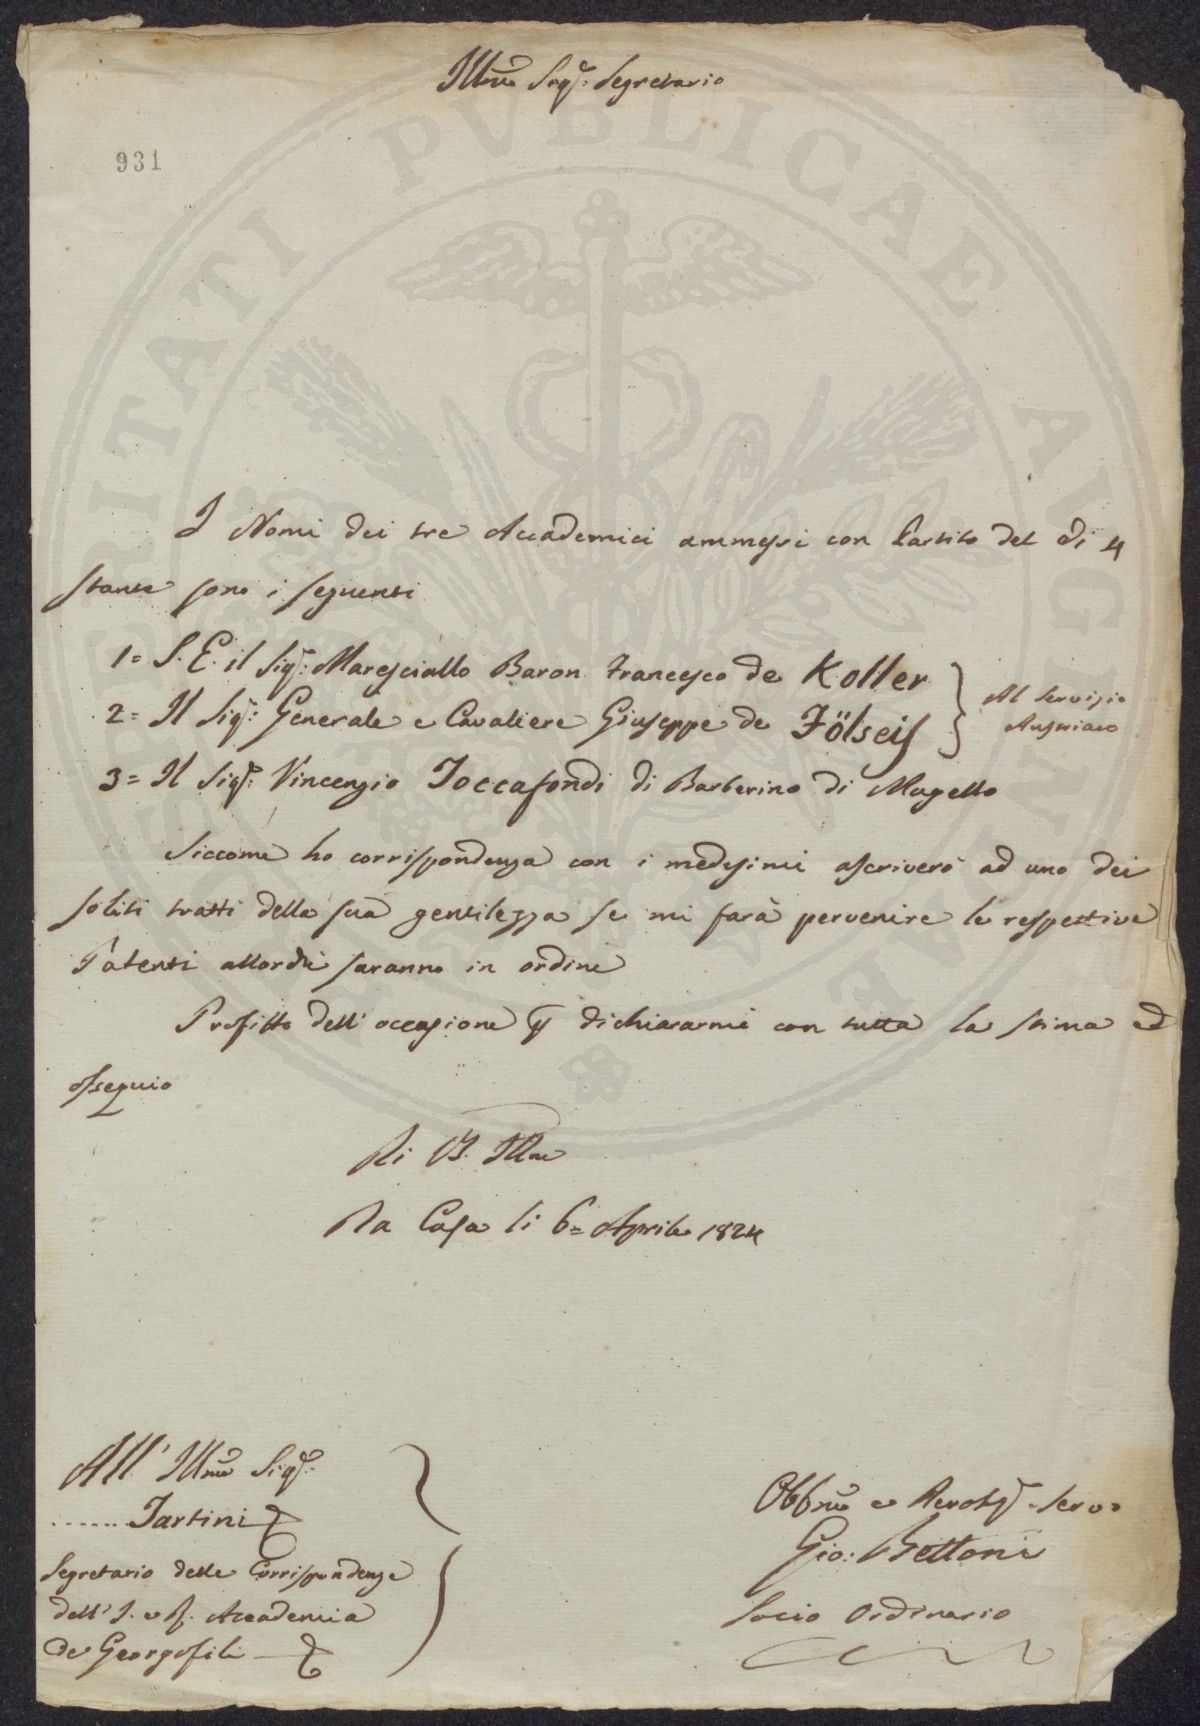 Illmo Sigr. Segretario
931
PVBLICAE
ITATI
I Nomi dei tre Accademici ammessi con Partito del dì 4
stante sono i seguenti
1= S. E. il Sigr. Maresciallo Baron Francesco de Koller
2= Il Sigr. Generale e Cavaliere Giuseppe de Fölseis
Al Servizio
Austriaco
3= Il Sigr. Vincenzio Toccafondi di Barberino di Mugello
Siccome ho corrispondenza con i medesimi ascriverò ad uno dei
soliti tratti della sua gentilezza se mi farà pervenire le respettive
Patenti allorchè saranno in ordine
Profitto dell' occasione p dichiararmi con tutta la stima ed
ossequio
Di V. S. Illma
Da Casa li 6= Aprile 1824
All' Illmo Sigr.
...... Tartini
Segretario delle Corrispondenze
dell' I. e R. Accademia
de Georgofili
Obbmo e Devotmo Servo
Gio: Bettoni
Socio Ordinario